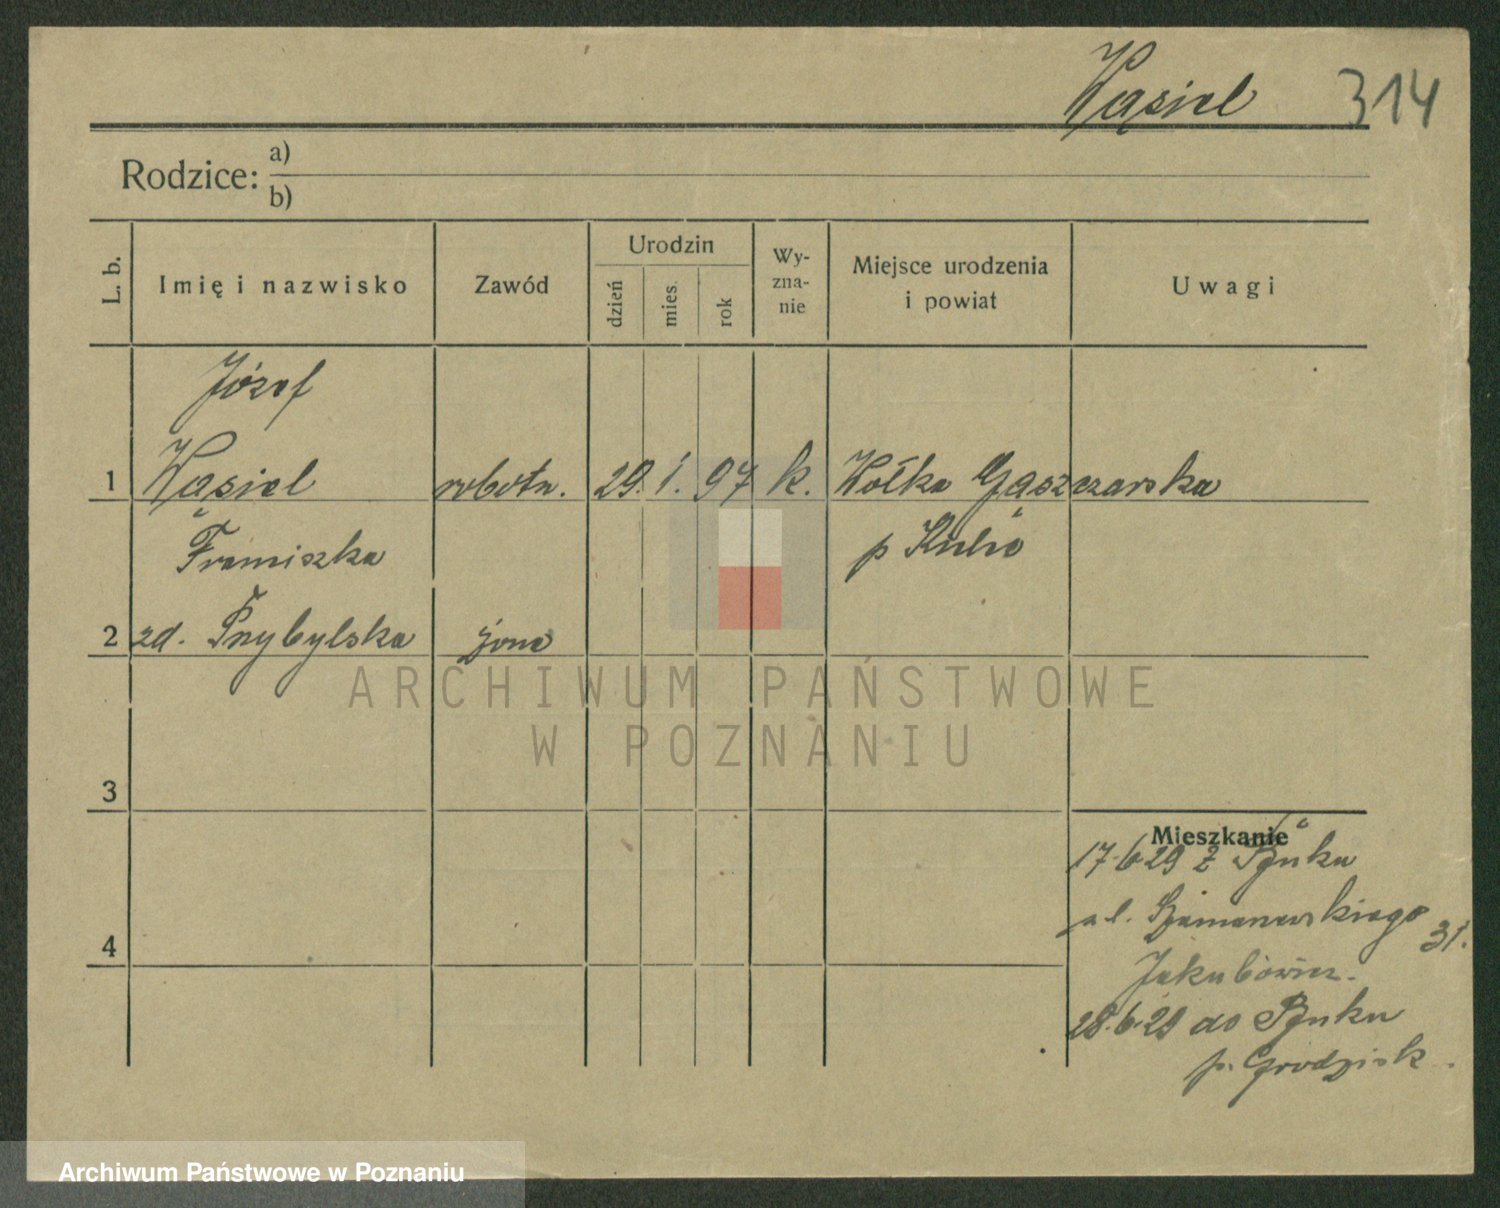 Wąsiel 314
Rodzice: a)
b)
L. b.
Imię i nazwisko
Zawód
Urodzin
dzień
mies.
rok
Wy-
zna-
nie
Miejsce urodzenia
i powiat
Uwagi
Józef
1 Wąsiel robotn. 29. 1. 97 k. Wólka Gąszczarska
Franciszka p
2 zd. Przybylska żona
3
4
Mieszkanie
17.6.29 z Ptuku
ul. 31.
Jakubowicz.
28.6.29 do Ptuku
p. Grodzisk.
ARCHIWUM PAŃSTWOWE
W POZNANIU
Archiwum Państwowe w Poznaniu